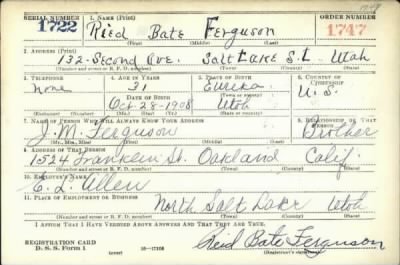 1949
SERIAL NUMBER 1. NAME (Print) ORDER NUMBER
1722 Ried Bate Ferguson 1747
(First) (Middle) (Last)
2. ADDRESS (Print)
132-Second Ave. Salt Lake S.L. Utah
(Number and street or R. F. D. number) (Town) (County) (State)
3. TELEPHONE 4. AGE IN YEARS 5. PLACE OF BIRTH 6. COUNTRY OF CITIZENSHIP
none 31 Eureka U.S.
DATE OF BIRTH (Town or county)
Oct-28-1908 Utah
(Mo.) (Day) (Yr.) (State or country)
7. NAME OF PERSON WHO WILL ALWAYS KNOW YOUR ADDRESS 8. RELATIONSHIP OF THAT PERSON
J. M. Ferguson Brother
(Mr., Mrs., Miss) (First) (Middle) (Last)
9. ADDRESS OF THAT PERSON
1524 Franklin St. Oakland Calif.
(Number and street or R. F. D. number) (Town) (County) (State)
10. EMPLOYER'S NAME
E. L. Allen
11. PLACE OF EMPLOYMENT OR BUSINESS
North Salt Lake Utah
(Number and street or R. F. D. number) (Town) (County) (State)
I AFFIRM THAT I HAVE VERIFIED ABOVE ANSWERS AND THAT THEY ARE TRUE.
REGISTRATION CARD
D. S. S. Form 1 (over) 16-17105
Ried Bate Ferguson
(Registrant's signature)